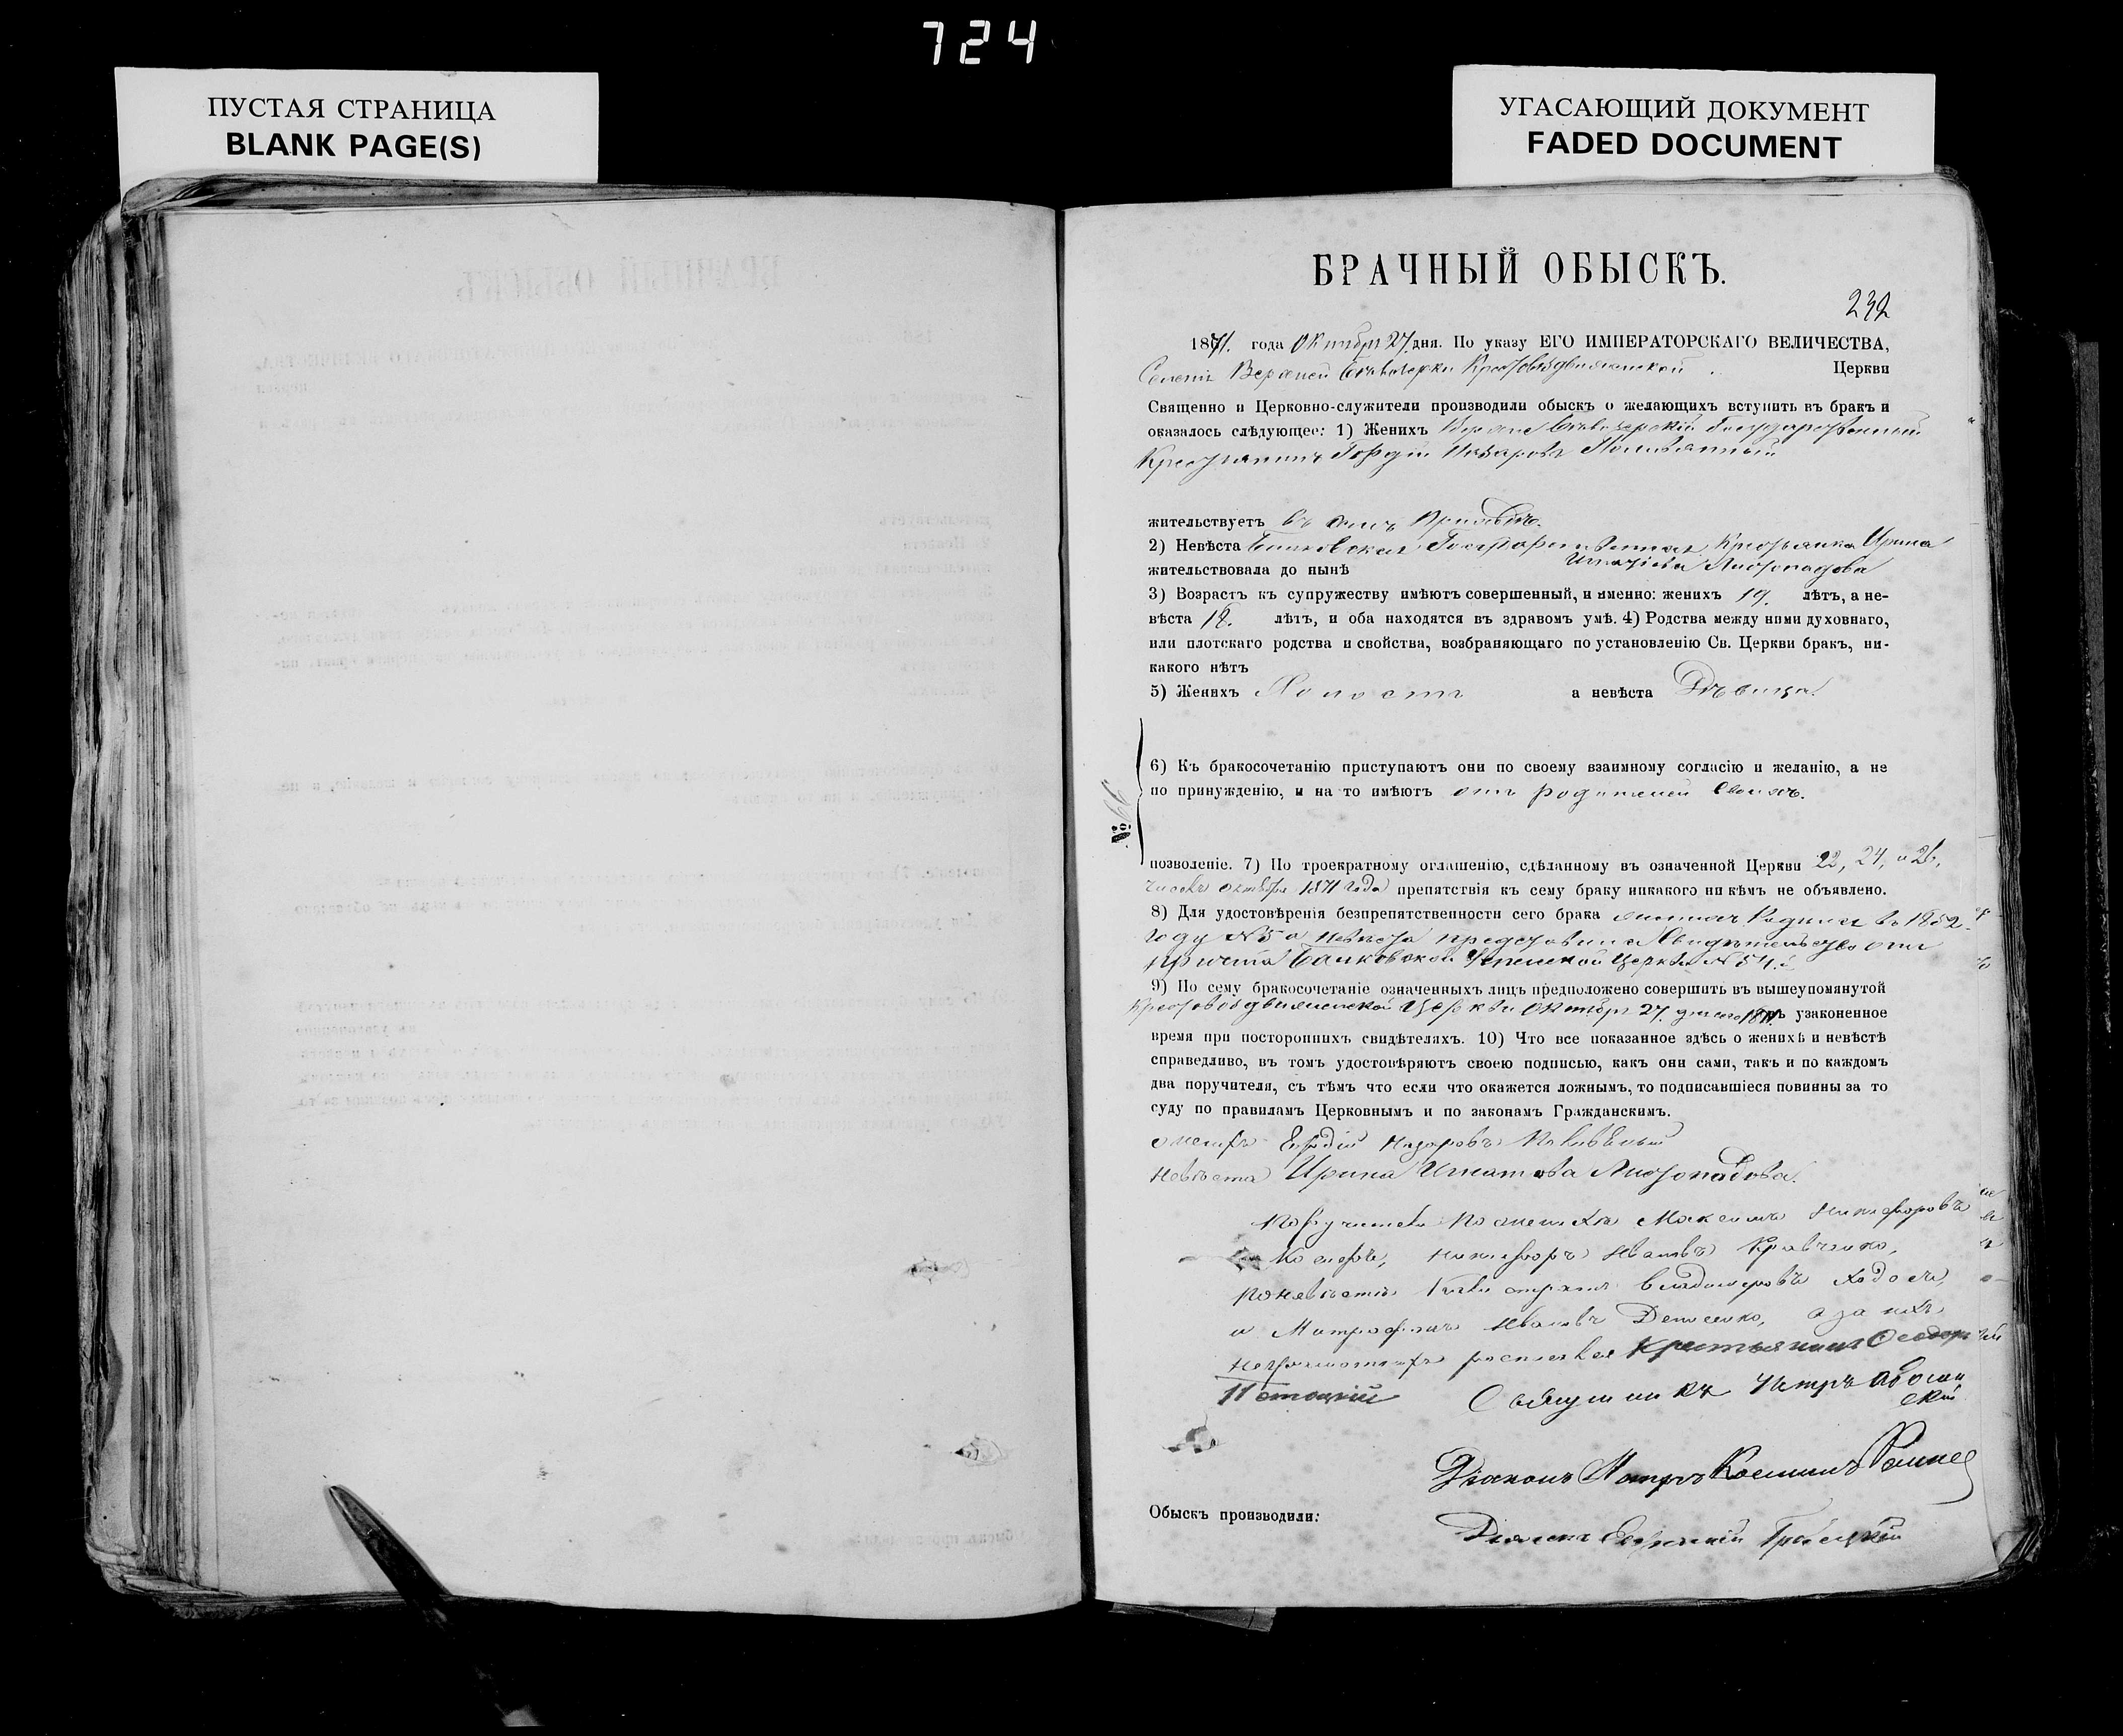 724
ПУСТАЯ СТРАНИЦА
BLANK PAGE(S)
УГАСАЮЩИЙ ДОКУМЕНТ
FADED DOCUMENT
БРАЧНЫЙ ОБЫСКЪ.
232
1871. года Октября 27 дня. По указу ЕГО ИМПЕРАТОРСКАГО ВЕЛИЧЕСТВА,
Крестовоздвиженской Церкви
Священно и Церковно-служители производили обыскъ о желающихъ вступить въ бракъ и
оказалось слѣдующее: 1) Женихъ Государственный
Крестьянинъ Гордій Назаровъ
жительствуетъ въ
2) Невѣста Государственная Крестьянка Ирина
жительствовала до нынѣ Игнатіева Листопадова
3) Возрастъ къ супружеству имѣютъ совершенный, и именно: женихъ 19. лѣтъ, а не-
вѣста 18. лѣтъ, и оба находятся въ здравомъ умѣ. 4) Родства между ними духовнаго,
или плотскаго родства и свойства, возбраняющаго по установленію Св. Церкви бракъ, ни-
какого нѣтъ
5) Женихъ Холостъ а невѣста Дѣвица.
6) Къ бракосочетанію приступаютъ они по своему взаимному согласію и желанію, а не
по принужденію, и на то имѣютъ отъ родителей своихъ.
№ 66
позволеніе. 7) По троекратному оглашенію, сдѣланному въ означенной Церкви 22, 24, и 26,
октября 1871 года препятствія къ сему браку никакого ни кѣмъ не объявлено.
8) Для удостовѣренія безпрепятственности сего брака женихъ родился въ 1852
году №5 а невѣста представила свидѣтельство отъ
причта Церкви №54.
9) По сему бракосочетаніе означенныхъ лицъ предположено совершить въ вышеупомянутой
Крестовоздвиженской Церкви Октября 27 дня 1871 въ узаконенное
время при постороннихъ свидѣтеляхъ. 10) Что все показанное здѣсь о женихѣ и невѣстѣ
справедливо, въ томъ удостовѣряютъ своею подписью, какъ они сами, такъ и по каждомъ
два поручителя, съ тѣмъ что если что окажется ложнымъ, то подписавшіеся повинны за то
суду по правиламъ Церковнымъ и по законамъ Гражданскимъ.
женихъ Гордій Назаровъ
невѣста Ирина Игнатова Листопадова.
Поручители по женихѣ Максимъ Никифоровъ
Никифоръ Ивановъ Кравченко,
по невѣстѣ Владимеровъ
и Митрофанъ Ивановъ Денисенко, а за нихъ
неграмотныхъ росписался Крестьянинъ Феодоръ
Священникъ Петръ
Діаконъ Петръ
Обыскъ производили: